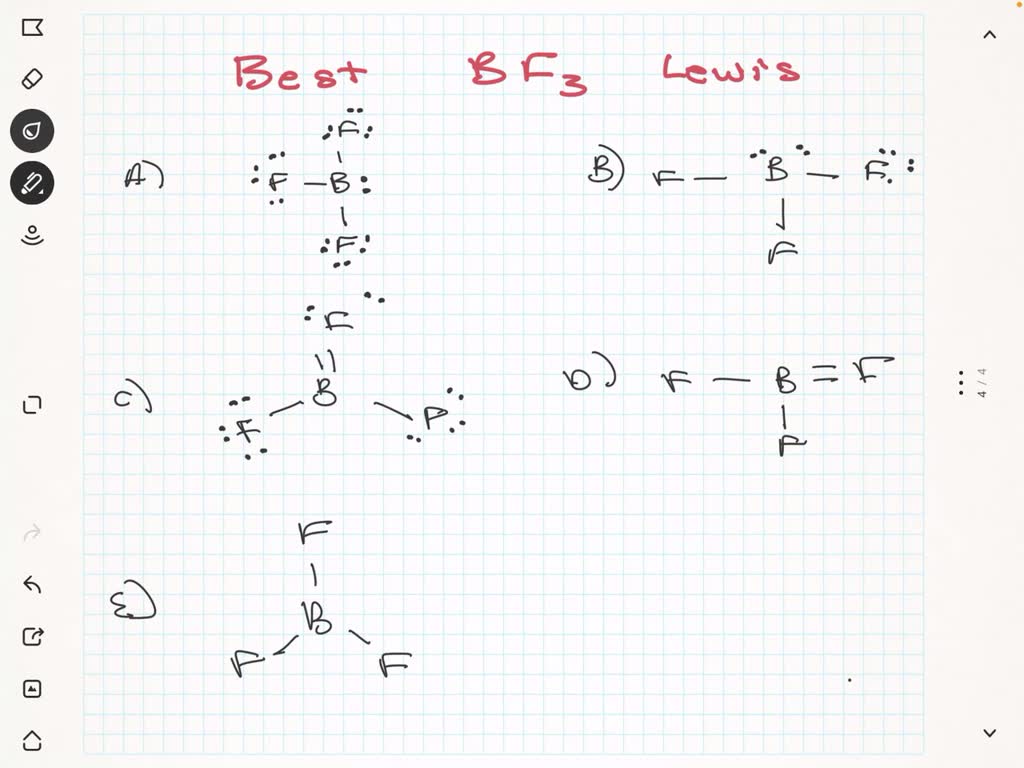 Best BF3 Lewis
A) :F: F - B : F:
B) F - B - F: F
C) :F B F F
D) F - B = F F
E) F B F F
4 / 4